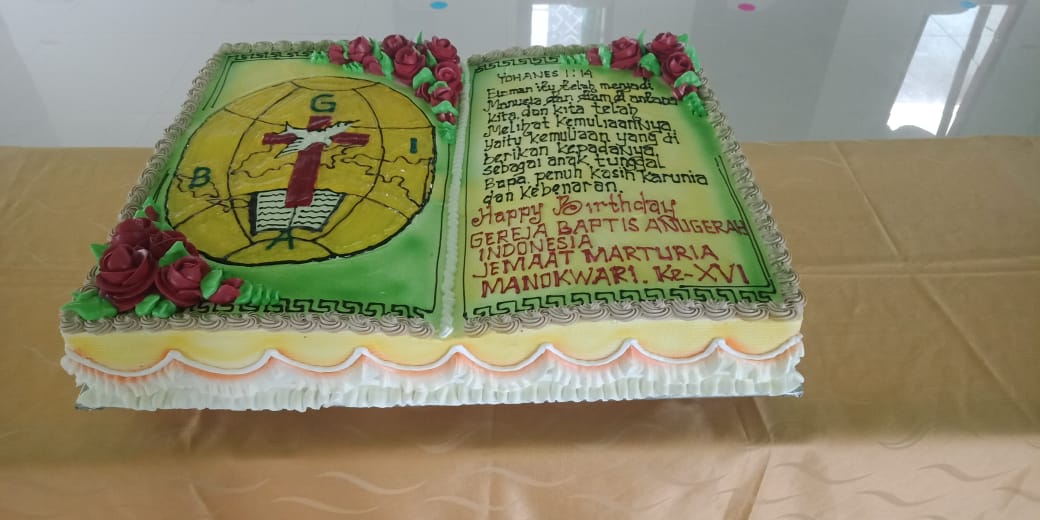 G
B I
A
YOHANES 1:14
Firman itu telah menjadi
Manusia dan diam di antara
kita, dan kita telah
Melihat kemuliaanNya
yaitu kemuliaan yang di
berikan kepadaNya
sebagai anak tunggal
Bapa, penuh kasih karunia
dan kebenaran.
Happy Birthday
GEREJA BAPTIS ANUGERAH
INDONESIA
JEMAAT MARTURIA
MANOKWARI. Ke-XVI